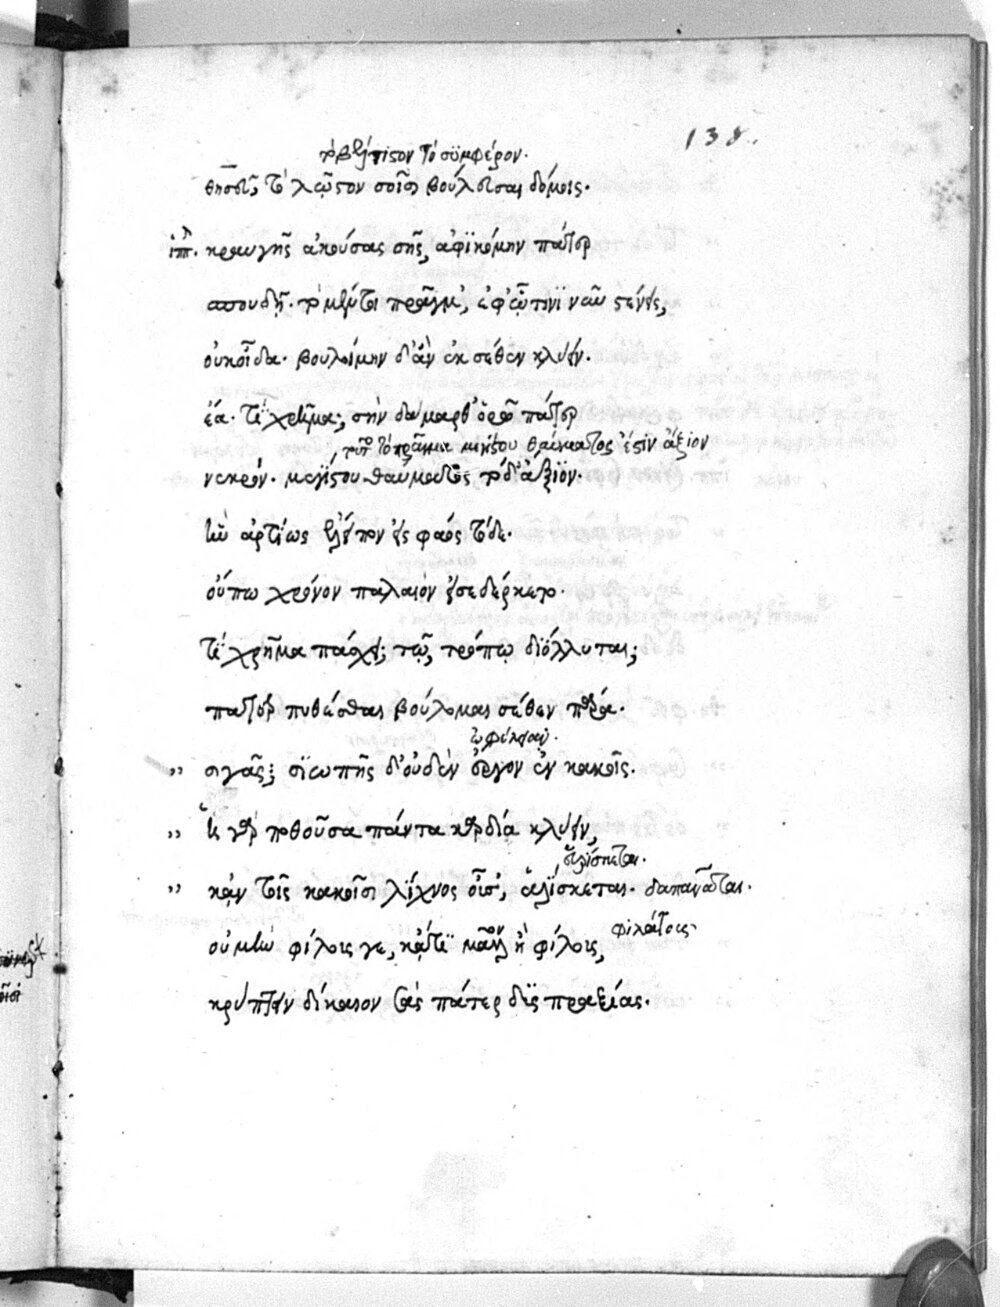 138.
τὸ βέλτιστον τὸ συμφέρον.
θησεῦ, τὸ λῷστον σοῖσι βούλευσαι δόμοις.
ἱππ. κραυγῆς ἀκούσας σῆς, ἀφϊκόμην πάτερ
σπουδῇ. τὸ μέντοι πρᾶγμ', ἐφ' ᾧτινϊ νῦν στένεις,
οὐκοἶδα. βουλοίμην δ'ἂν ἐκ σέθεν κλύειν.
ἔα. τί χρῆμα; σὴν δάμαρθ' ὁρῶ πάτερ
τοῦτο τὸ πρᾶγμα μεγίστου θαύματος ἐστὶν ἄξιον
νεκρόν. μεγΐστου θαύματος τόδ' ἄξϊον.
ἣν ἀρτίως ἔλειπον εἰς φάος τόδε.
οὔπω χρόνον παλαιὸν εἰσεδέρκετο.
τί χρῆμα πάσχει; τῷ τρόπῳ διόλλυται;
πάτερ πυθέσθαι βούλομαι σέθεν πάρα.
ὠφέλεια.
,, σιγᾷς; σϊωπῆς δ'οὐδὲν ἔργον ἐν κακοῖς.
,, ἡ γὰρ ποθοῦσα πάντα καρδία κλύειν,
εὑρίσκεται.
,, κἀν τοῖς κακοῖσι λΐχνος οὖσ', ἁλΐσκεται. δαπανᾶται.
φιλτάτοις
οὐ μὴν φίλοις γε, κἄτϊ μᾶλλον ἢ φίλοις,
κρύπτειν δίκαιον σὰς πάτερ δυσπραξίας.